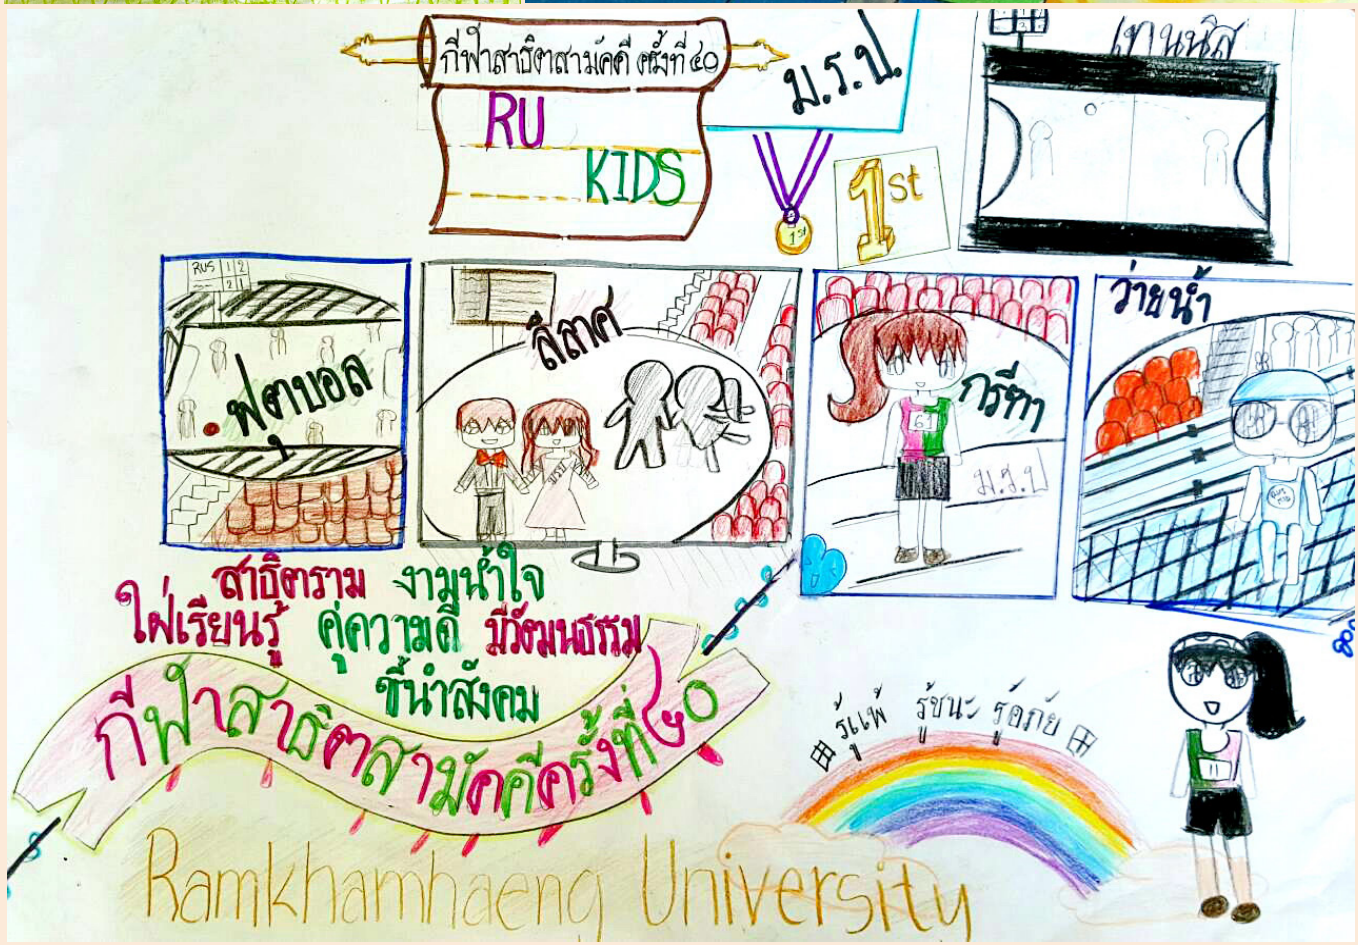 กีฬาสาธิตสามัคคี ครั้งที่ ๔๐
RU
KIDS
ม.ร.ป.
1st
1st
เทนนิส
RUS 1 2
2 1
ฟุตบอล
ลีลาศ
กรีฑา
61
ม.ร.ป
ว่ายน้ำ
สาธิตราม งามน้ำใจ
ใฝ่เรียนรู้ คู่ความดี มีวัฒนธรรม
ชี้นำสังคม
กีฬาสาธิตสามัคคีครั้งที่ ๔๐
รู้แพ้ รู้ชนะ รู้อภัย
11
Ramkhamhaeng University